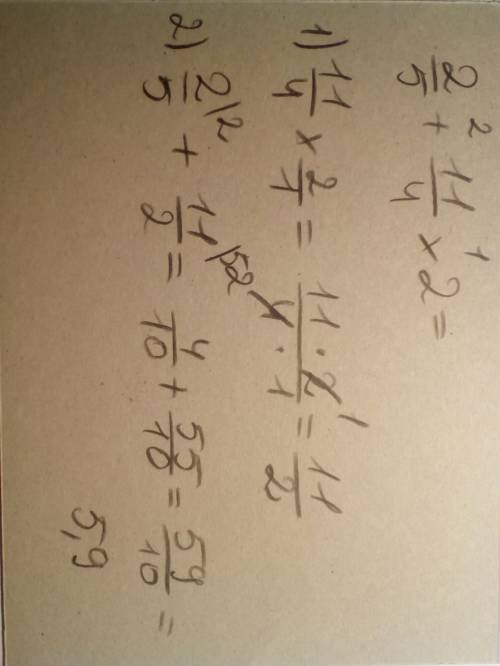 2/5 +² 11/4 ×¹ 2 =
1) 11/4 × 2/1 = 11 · 2¹ / 4₂ · 1 = 11/2
2) 2\²/5 + 11\⁵/2 = 4/10 + 55/10 = 59/10 =
5,9